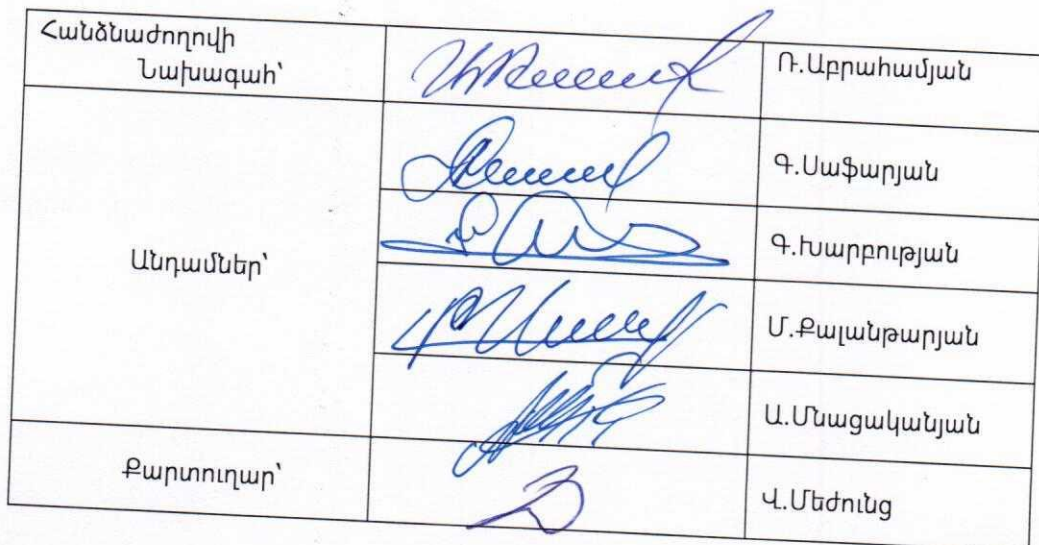 Հանձնաժողովի
Նախագահ՝
Ռ.Աբրահամյան
Գ.Սաֆարյան
Գ.Խարբության
Անդամներ՝
Մ.Քալանթարյան
Ա.Մնացականյան
Քարտուղար՝
Վ.Մեժունց